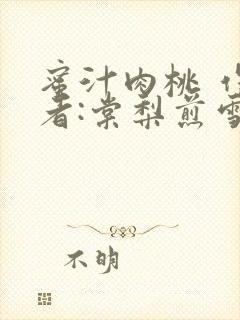 蜜汁肉桃 作
者:棠梨煎雪
不明